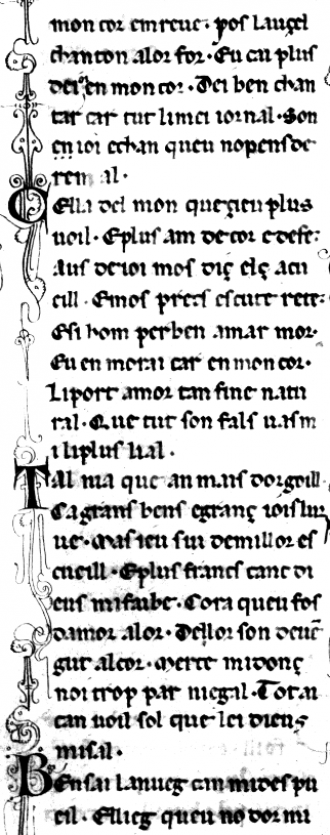 mon cor em reue · pos lauçel
chanton alor for · Eu cai plus
dei en mon cor · Dei ben chan
tar car tut limei iornal · Son
en ioi echan queu no pens de
ren al ·
Cella del mon queçieu plus
uoil · E plus am de cor e de fe ·
Aus de ioi mos diç elç acu
eill · Emos precs escut e reten ·
E si hom per ben amar mor ·
Eu en morai car en mon cor ·
Li port amor tan fine natu
ral · Que tut son fals uas m
i liplus lial ·
Tal nia que an mais dorgoill ·
Ca grans bens e granç iois lur
ue · Mas ieu sui de millor es
cueill · E plus francs canc di
eus mi fai be · Cora queu fos
damor alor · Dellor son deuē
gut alcor · Merce midonç
noi trop par ni egal · Tot ai
can uoil sol que lei dieus
mi sal ·
Ben sai la nueg can mi des pu
eil · El lieg queu no dor mi